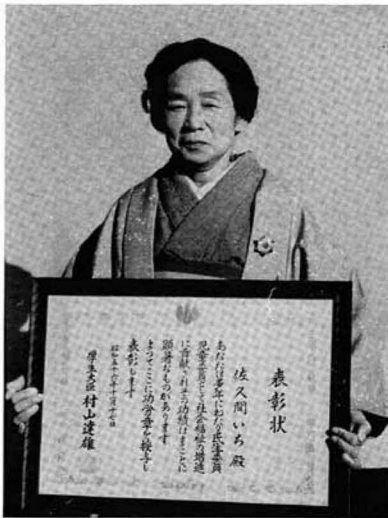 表彰状
佐久間いち殿
あなたは多年にわたり民生委員
児童委員として社会福祉の増進
に貢献されその功績はまことに
顕著なものがあります
よってここに功労章を授与し
表彰します
昭和五十六年十一月十七日
厚生大臣 村山達雄